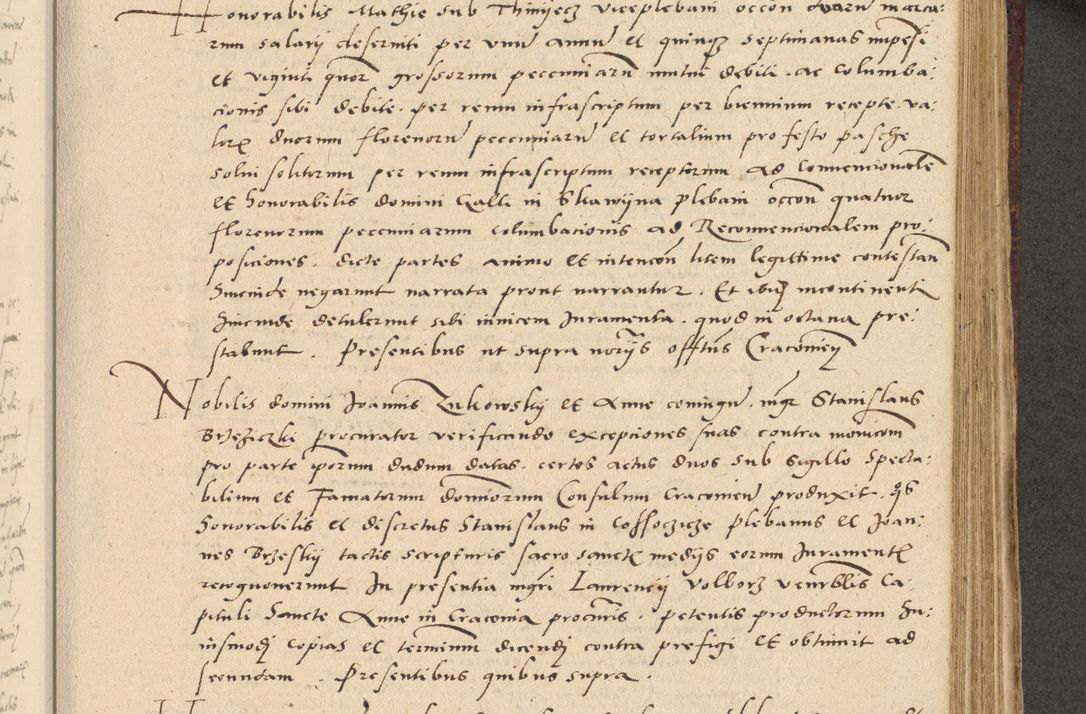 Honorabilis Mathie sub Thinijecz viceplebani occon duaru marca:
rum salarij deserviti per unu annu et quinqz septimanas impesi
et viginti quor grossorum peccuniaru mutui debiti. ac columba:
cionis sibi debite. per reum infrascriptum per biennium recepte. va:
lorz duorum florenoru peccuniaru et tortalium pro festo pasche
solvi solitorum per reum infrascriptum receptorum ad Convencionale
et honorabilis domini Galli in Skawijna plebani occon quatuor
florenorum peccuniarum columbacionis ad Reconvencionalem pro:
posiciones. dicte partes animo et intencon litem legittime contestan
hincinde negarunt narrata prout narrantur. Et ibiq incontinenti
hincinde detulerunt sibi invicem Juramenta. quod in octava pre:
stabunt. Presentibus ut supra norijs offtus Cracovien
Nobilis domini Joannis Zukowskij et Anne coniugu. mgr Stanislaus
Brzeziczki procurator verificando excepciones suas contra monicom
pro parte iporum dudum datas. certos actus duos sub sigillo specta:
bilium et Famatorum dominorum Consulum Cracovien produxit. qs
honorabilis et discretus Stanislaus in Cossoczicze plebanus et Joan:
nes Brzeskij tactis scripturis sacro sanctis medijs eorum Juramentis
recognoverunt In presentia mgri Laurencij Volborz venrblis Ca:
pituli Sancte Anne in Cracovia procuris. petentis productorum hu:
iusmodi copias et terminum dicendi contra prefigi et obtinuit ad
secundam. Presentibus quibus supra.